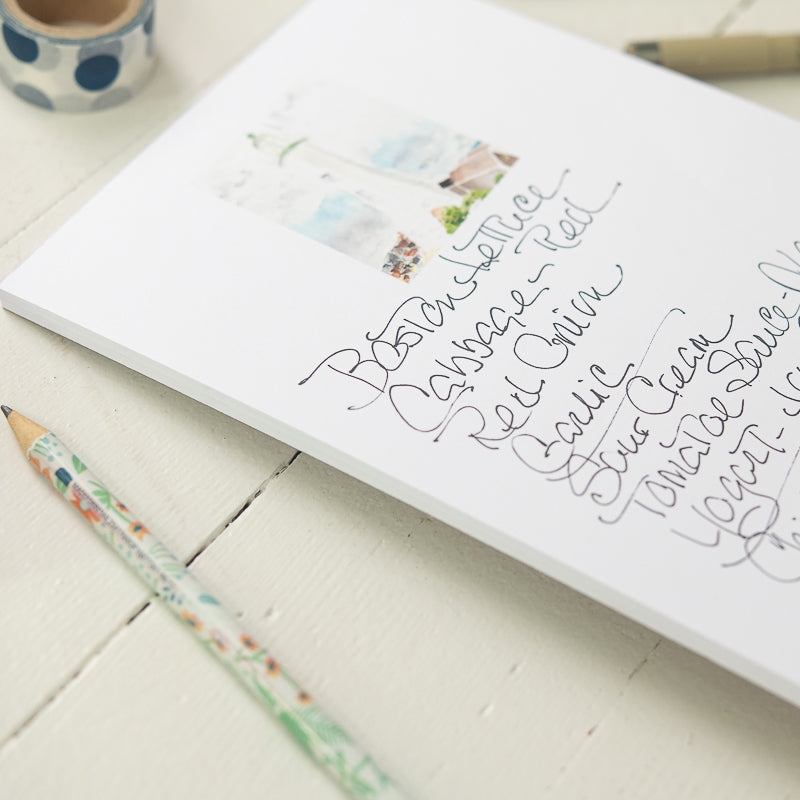 Boston Lettuce
Cabbage - Red
Red Onion
Garlic
Sour Cream
Tomatoe Sauce -
Yogurt -